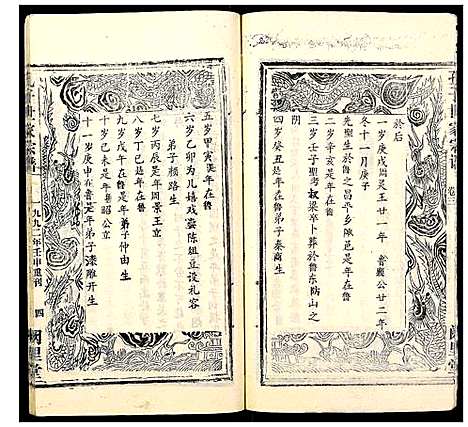 孔子世家宗谱 卷三
於后
一岁庚戌周灵王廿一年 鲁襄公廿二年
冬十一月庚子
先圣生於鲁之昌平乡陬邑是年在鲁
三岁壬子圣考叔梁卒卜葬於鲁东防山之
阴
四岁癸丑是年在鲁弟子秦商生
阙里堂
五岁甲寅是年在鲁
六岁乙卯是年为儿嬉戏尝陈俎豆设礼容
弟子颜路生
七岁丙辰是年周景王立
八岁丁巳是年在鲁
九岁戊午在鲁是年弟子仲由生
十岁己未是年鲁昭公立
十一岁庚申在鲁是年弟子漆雕开生
孔子世家宗谱
一九九二年壬申重刊 四
阙里堂